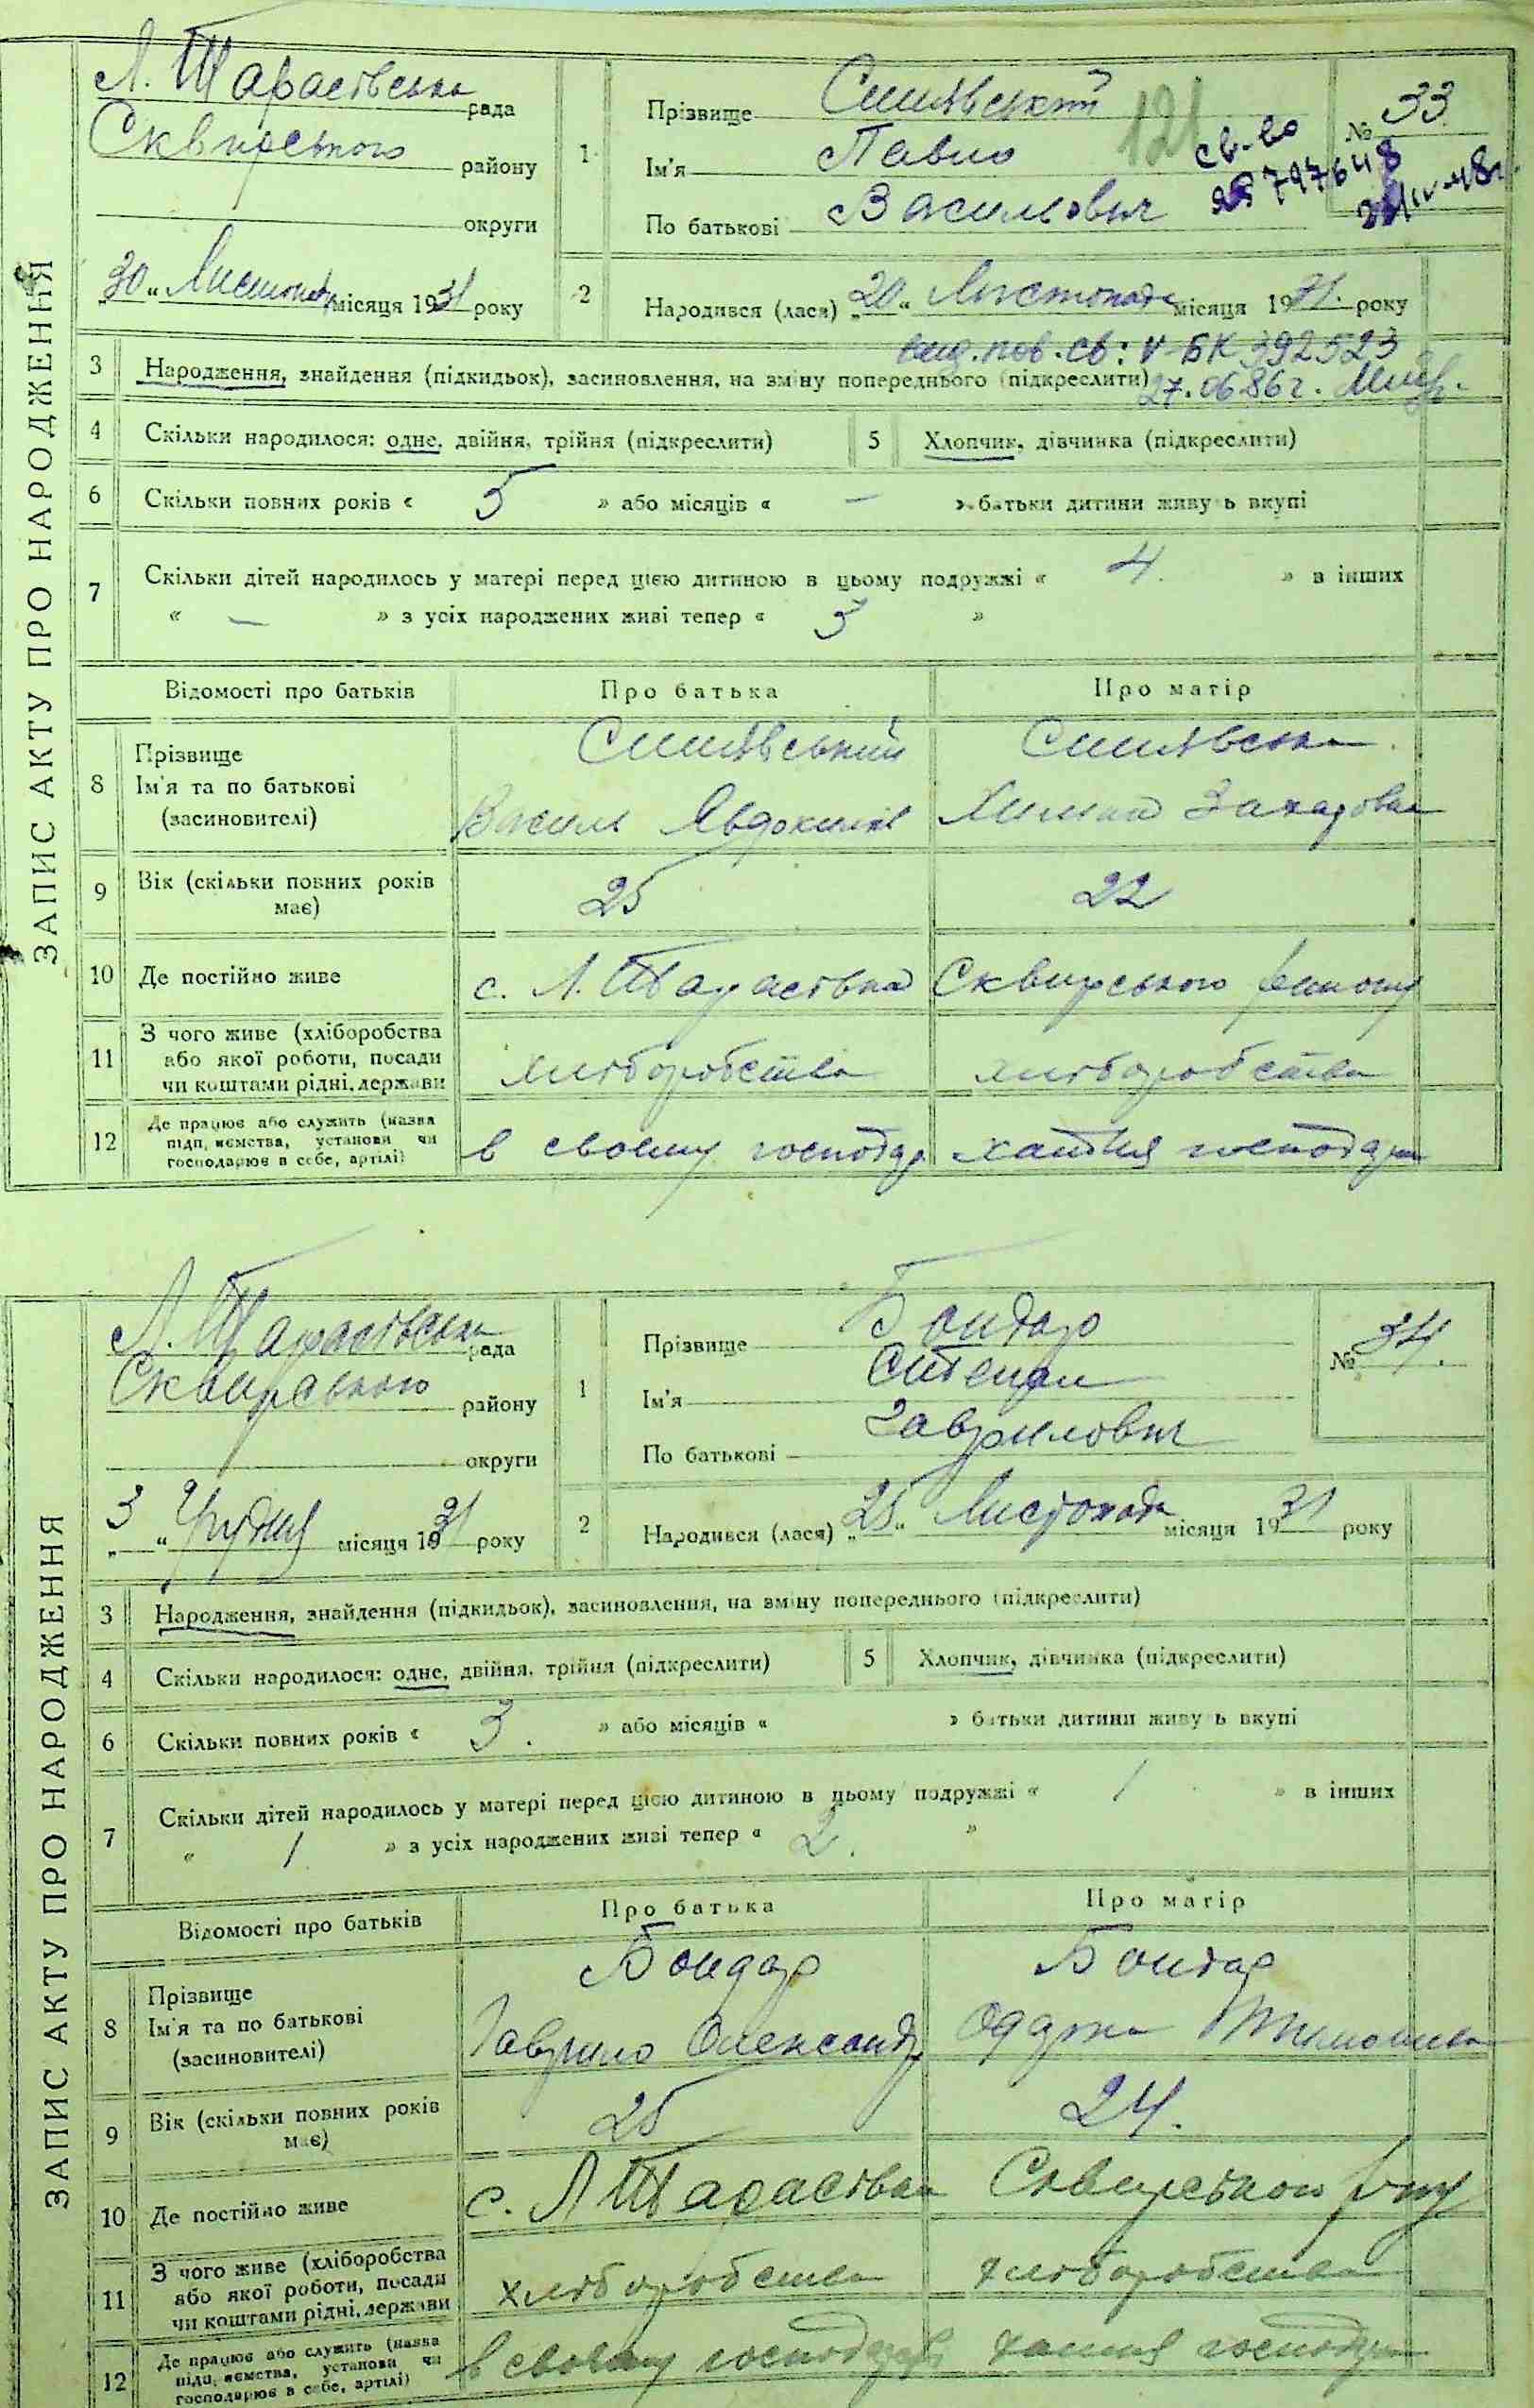 ЗАПИС АКТУ ПРО НАРОДЖЕННЯ
Л. Тарасівська рада
Сквирського району
округи
„30“ Листопада місяця 1931 року
1
Прізвище
Ім'я Павло
По батькові Васильович
121
св-во
797648
№ 33
2
Народився (лася) „20“ Листопада місяця 1931. року
вид. пов. св: V-БК 392523
27.06.86г.
3 Народження, знайдення (підкидьок), засиновлення, на зміну попереднього (підкреслити)
4 Скільки народилося: одне, двійня, трійня (підкреслити) 5 Хлопчик, дівчинка (підкреслити)
6 Скільки повних років « 5 » або місяців « — » батьки дитини живуть вкупі
7 Скільки дітей народилось у матері перед цією дитиною в цьому подружжі « 4. » в інших
« — » з усіх народжених живі тепер « 3 »
Відомості про батьків Про батька Про матір
8 Прізвище
Ім'я та по батькові Василь Явдокимів Захарова
(засиновителі)
9 Вік (скільки повних років має) 25 22
10 Де постійно живе с. Л. Тарасівка Сквирського району
11 З чого живе (хліборобства
або якої роботи, посади
чи коштами рідні, держави хліборобства хліборобства
12 Де працює або служить (назва
підприємства, установи чи
господарює в себе, артілі) в своєму господар хатня господар
ЗАПИС АКТУ ПРО НАРОДЖЕННЯ
Л. Тарасівська рада
Сквирського району
округи
„3“ Грудня місяця 1931 року
1
Прізвище Бондар
Ім'я Степан
По батькові Гаврилович
№ 34.
2
Народився (лася) „25“ Листопада місяця 1931 року
3 Народження, знайдення (підкидьок), засиновлення, на зміну попереднього (підкреслити)
4 Скільки народилося: одне, двійня, трійня (підкреслити) 5 Хлопчик, дівчинка (підкреслити)
6 Скільки повних років « 3. » або місяців « » батьки дитини живуть вкупі
7 Скільки дітей народилось у матері перед цією дитиною в цьому подружжі « 1 » в інших
« 1 » з усіх народжених живі тепер « 2. »
Відомості про батьків Про батька Про матір
8 Прізвище Бондар Бондар
Ім'я та по батькові Гаврило Олександр
(засиновителі)
9 Вік (скільки повних років має) 25 24.
10 Де постійно живе с. Л Тарасівка Сквирського р-ну
11 З чого живе (хліборобства
або якої роботи, посади
чи коштами рідні, держави хліборобства хліборобства
12 Де працює або служить (назва
підприємства, установи чи
господарює в себе, артілі) в своєму господар хатня господар